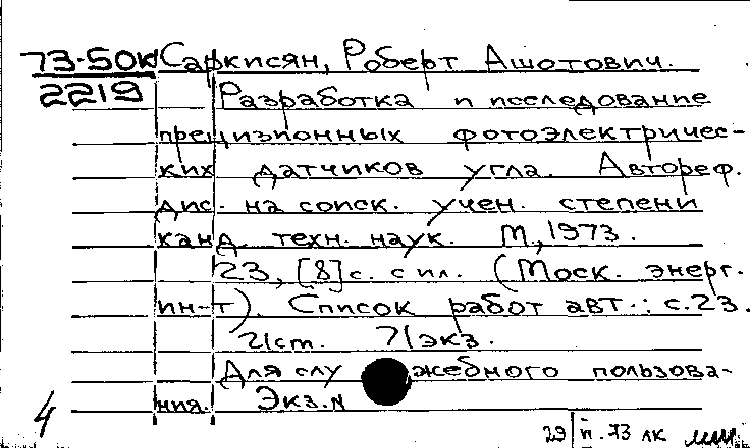 73-50к Саркисян, Роберт Ашотович.
2219 Разработка и исследование
прецизионных фотоэлектричес-
ких датчиков угла. Автореф.
дис. на соиск. учен. степени
канд. техн. наук. М., 1973.
23, [8] с. с ил. (Моск. энерг.
ин-т). Список работ авт.: с.23.
2/ст. 7/экз.
Для служебного пользова-
ния. Экз.N
4
29 п. 73 лк